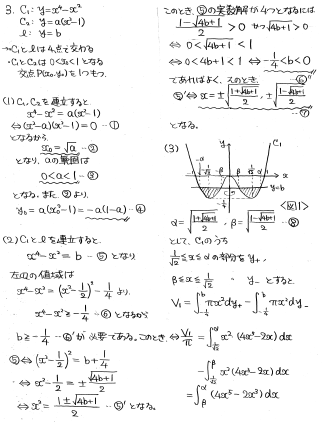 3. C₁: y=x⁴-x²
C₂: y=a(x²-1)
l: y=b
→C₁とlは4点で交わる
・C₁とC₂は0<x₀<1となる
交点P(x₀,y₀)を1つもつ.
(1) C₁,C₂を連立すると
x⁴-x²=a(x²-1)
⇔(x²-a)(x²-1)=0 …①
となるから
x₀=√a …②
となり、aの範囲は
0<a<1 …③
となる。また②より,
y₀=a(x₀²-1)=-a(1-a) …④
(2) C₁とlを連立すると.
x⁴-x²=b …⑤ となり
左辺の値域は
x⁴-x²=(x²-1/2)²-1/4 より,
x⁴-x²≧-1/4 …⑥ となるから
b≧-1/4 …⑥' が必要である。このとき,
⑤⇔(x²-1/2)²=b+1/4
⇔x²-1/2=±√(4b+1)/2
⇔x²=(1±√(4b+1))/2 …⑤' となる。
このとき, ⑤の実数解が4つとなるには
(1-√(4b+1))/2>0 かつ √(4b+1)>0
⇔0<√(4b+1)<1
⇔0<4b+1<1 ⇔-1/4<b<0
であればよく、このとき, …⑥
⑤'⇔x=±√((1+√(4b+1))/2), ±√((1-√(4b+1))/2)
…⑦
となる。
(3)
y
C₁
-α
-β
β
1/√2
α
x
y=b
-1/4
α=√((1+√(4b+1))/2), β=√((1-√(4b+1))/2) …⑧
として, C₁のうち
1/√2≦x≦αの部分を y₊,
β≦x≦1/√2 〃 y₋ とすると
V₁=∫πx²dy₊-∫πx²dy₋
⇔V₁/π=∫x²・(4x³-2x)dx
-∫x²(4x³-2x)dx
=∫(4x⁵-2x³)dx